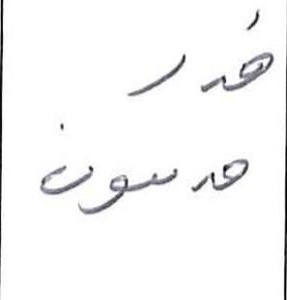 هدر
هدسون